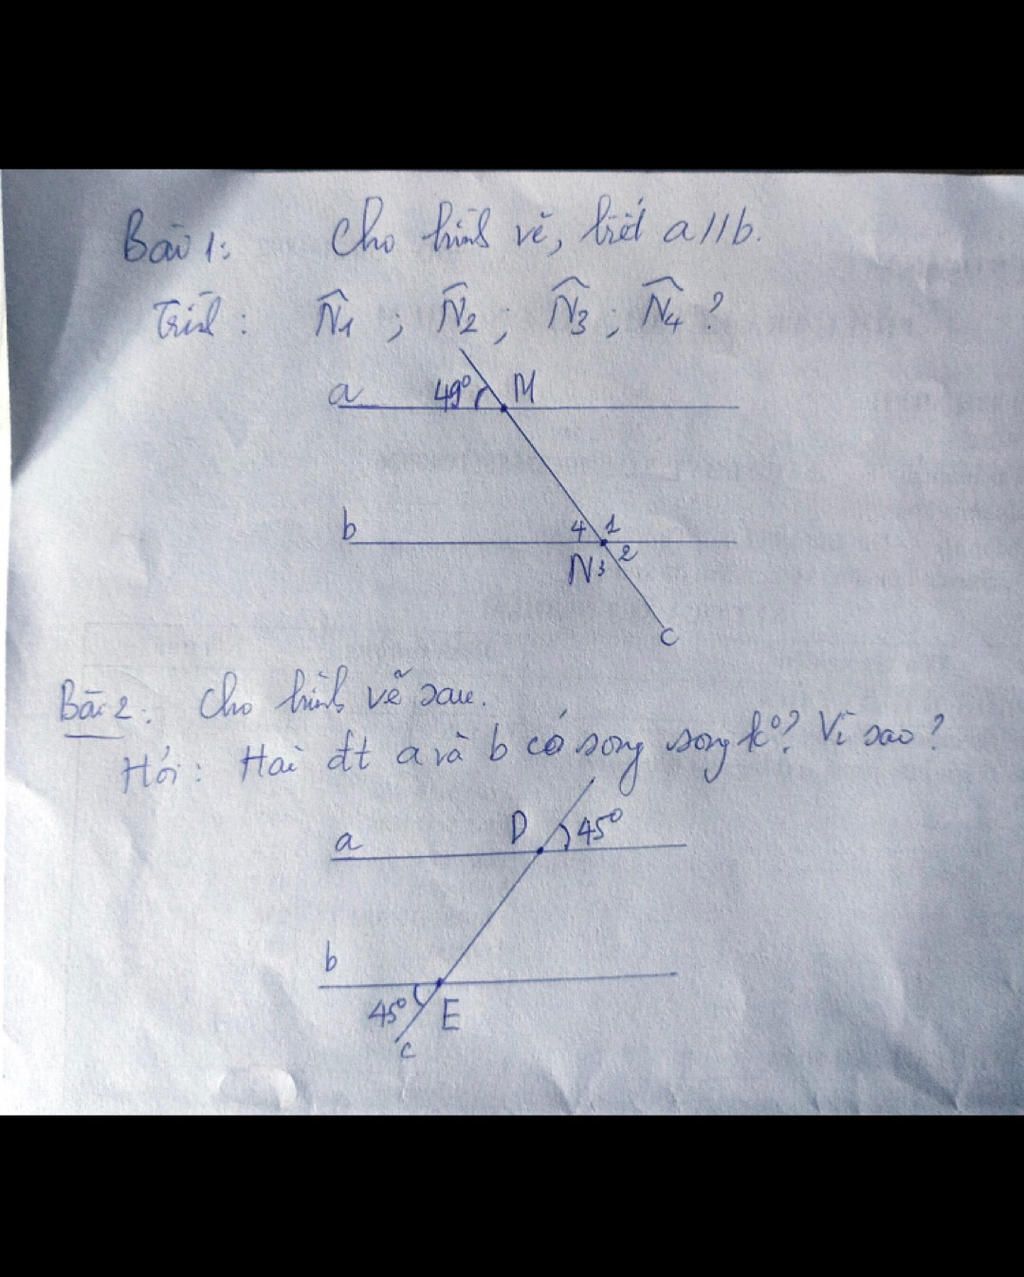 Bài 1: Cho hình vẽ, biết a//b.
Tính: N̂1 ; N̂2 ; N̂3 ; N̂4 ?
a 49° M
b 4 1
N 3 2
c
Bài 2: Cho hình vẽ sau.
Hỏi: Hai đt a và b có song song k°? Vì sao?
a D 45°
b
45° E
c